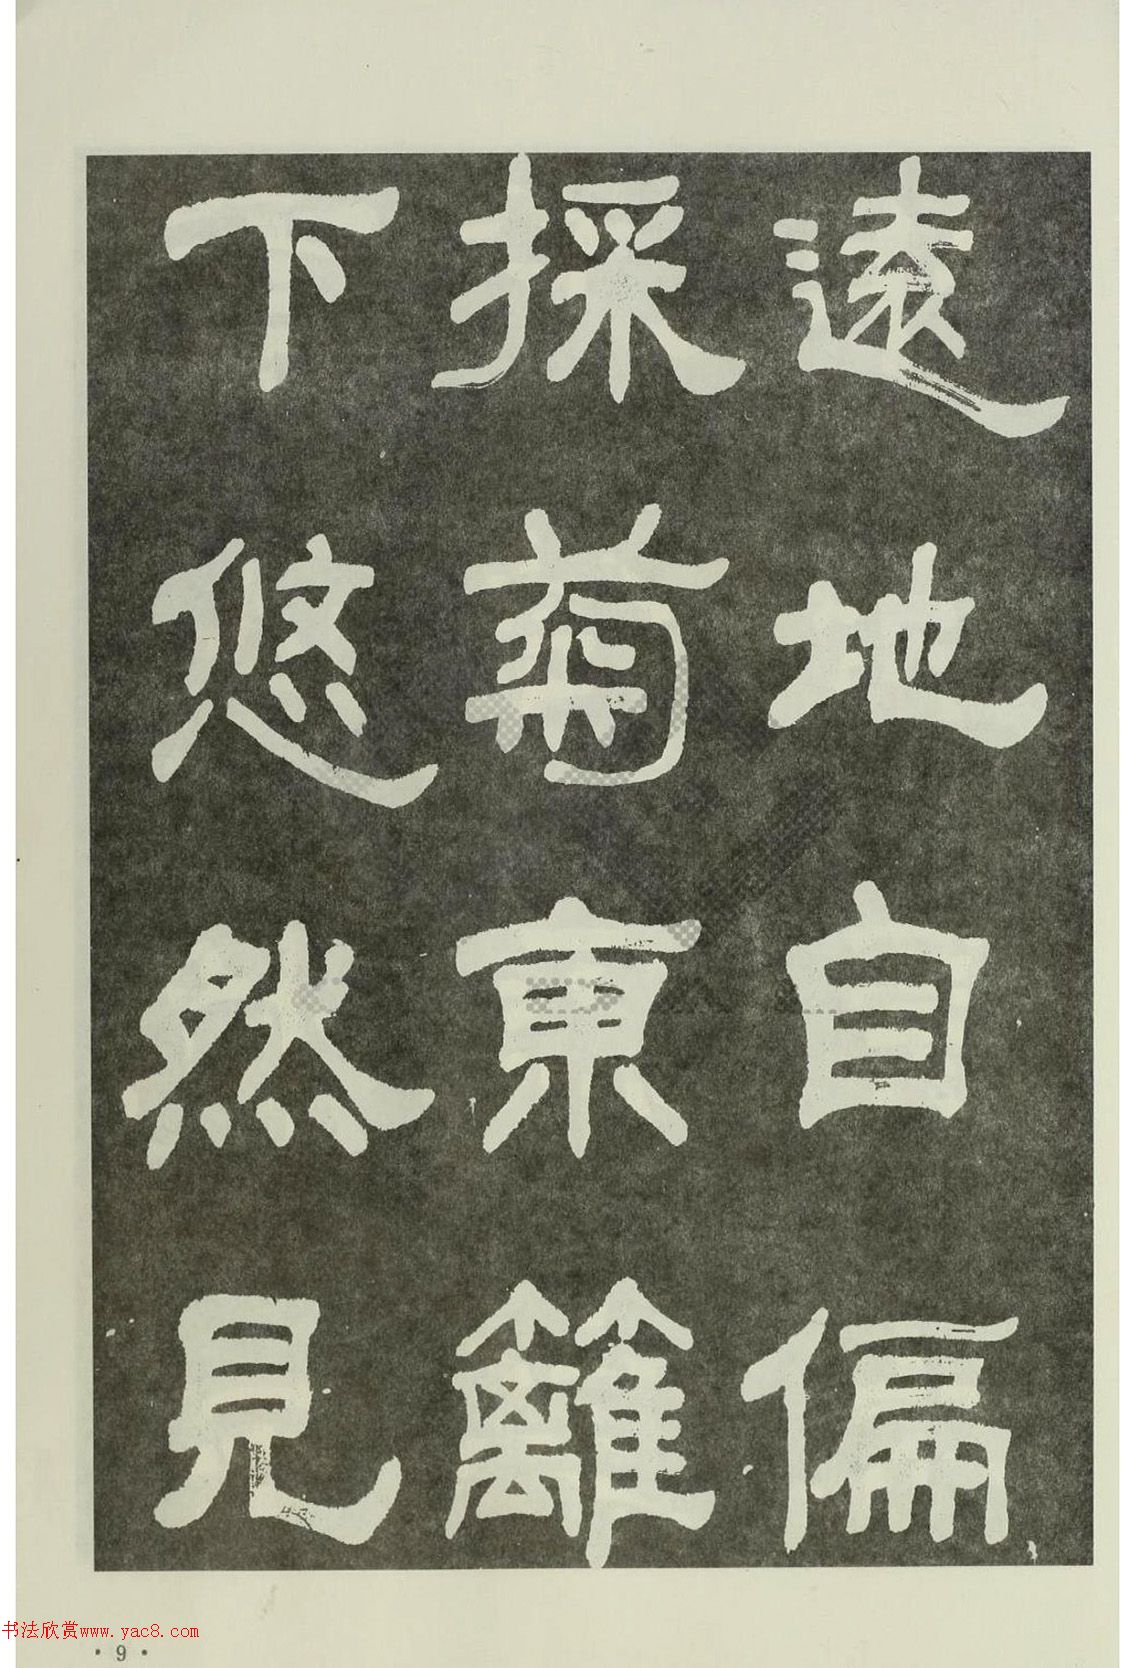 遠地自偏
採菊東籬
下悠然見
书法欣赏www.yac8.com
·9·